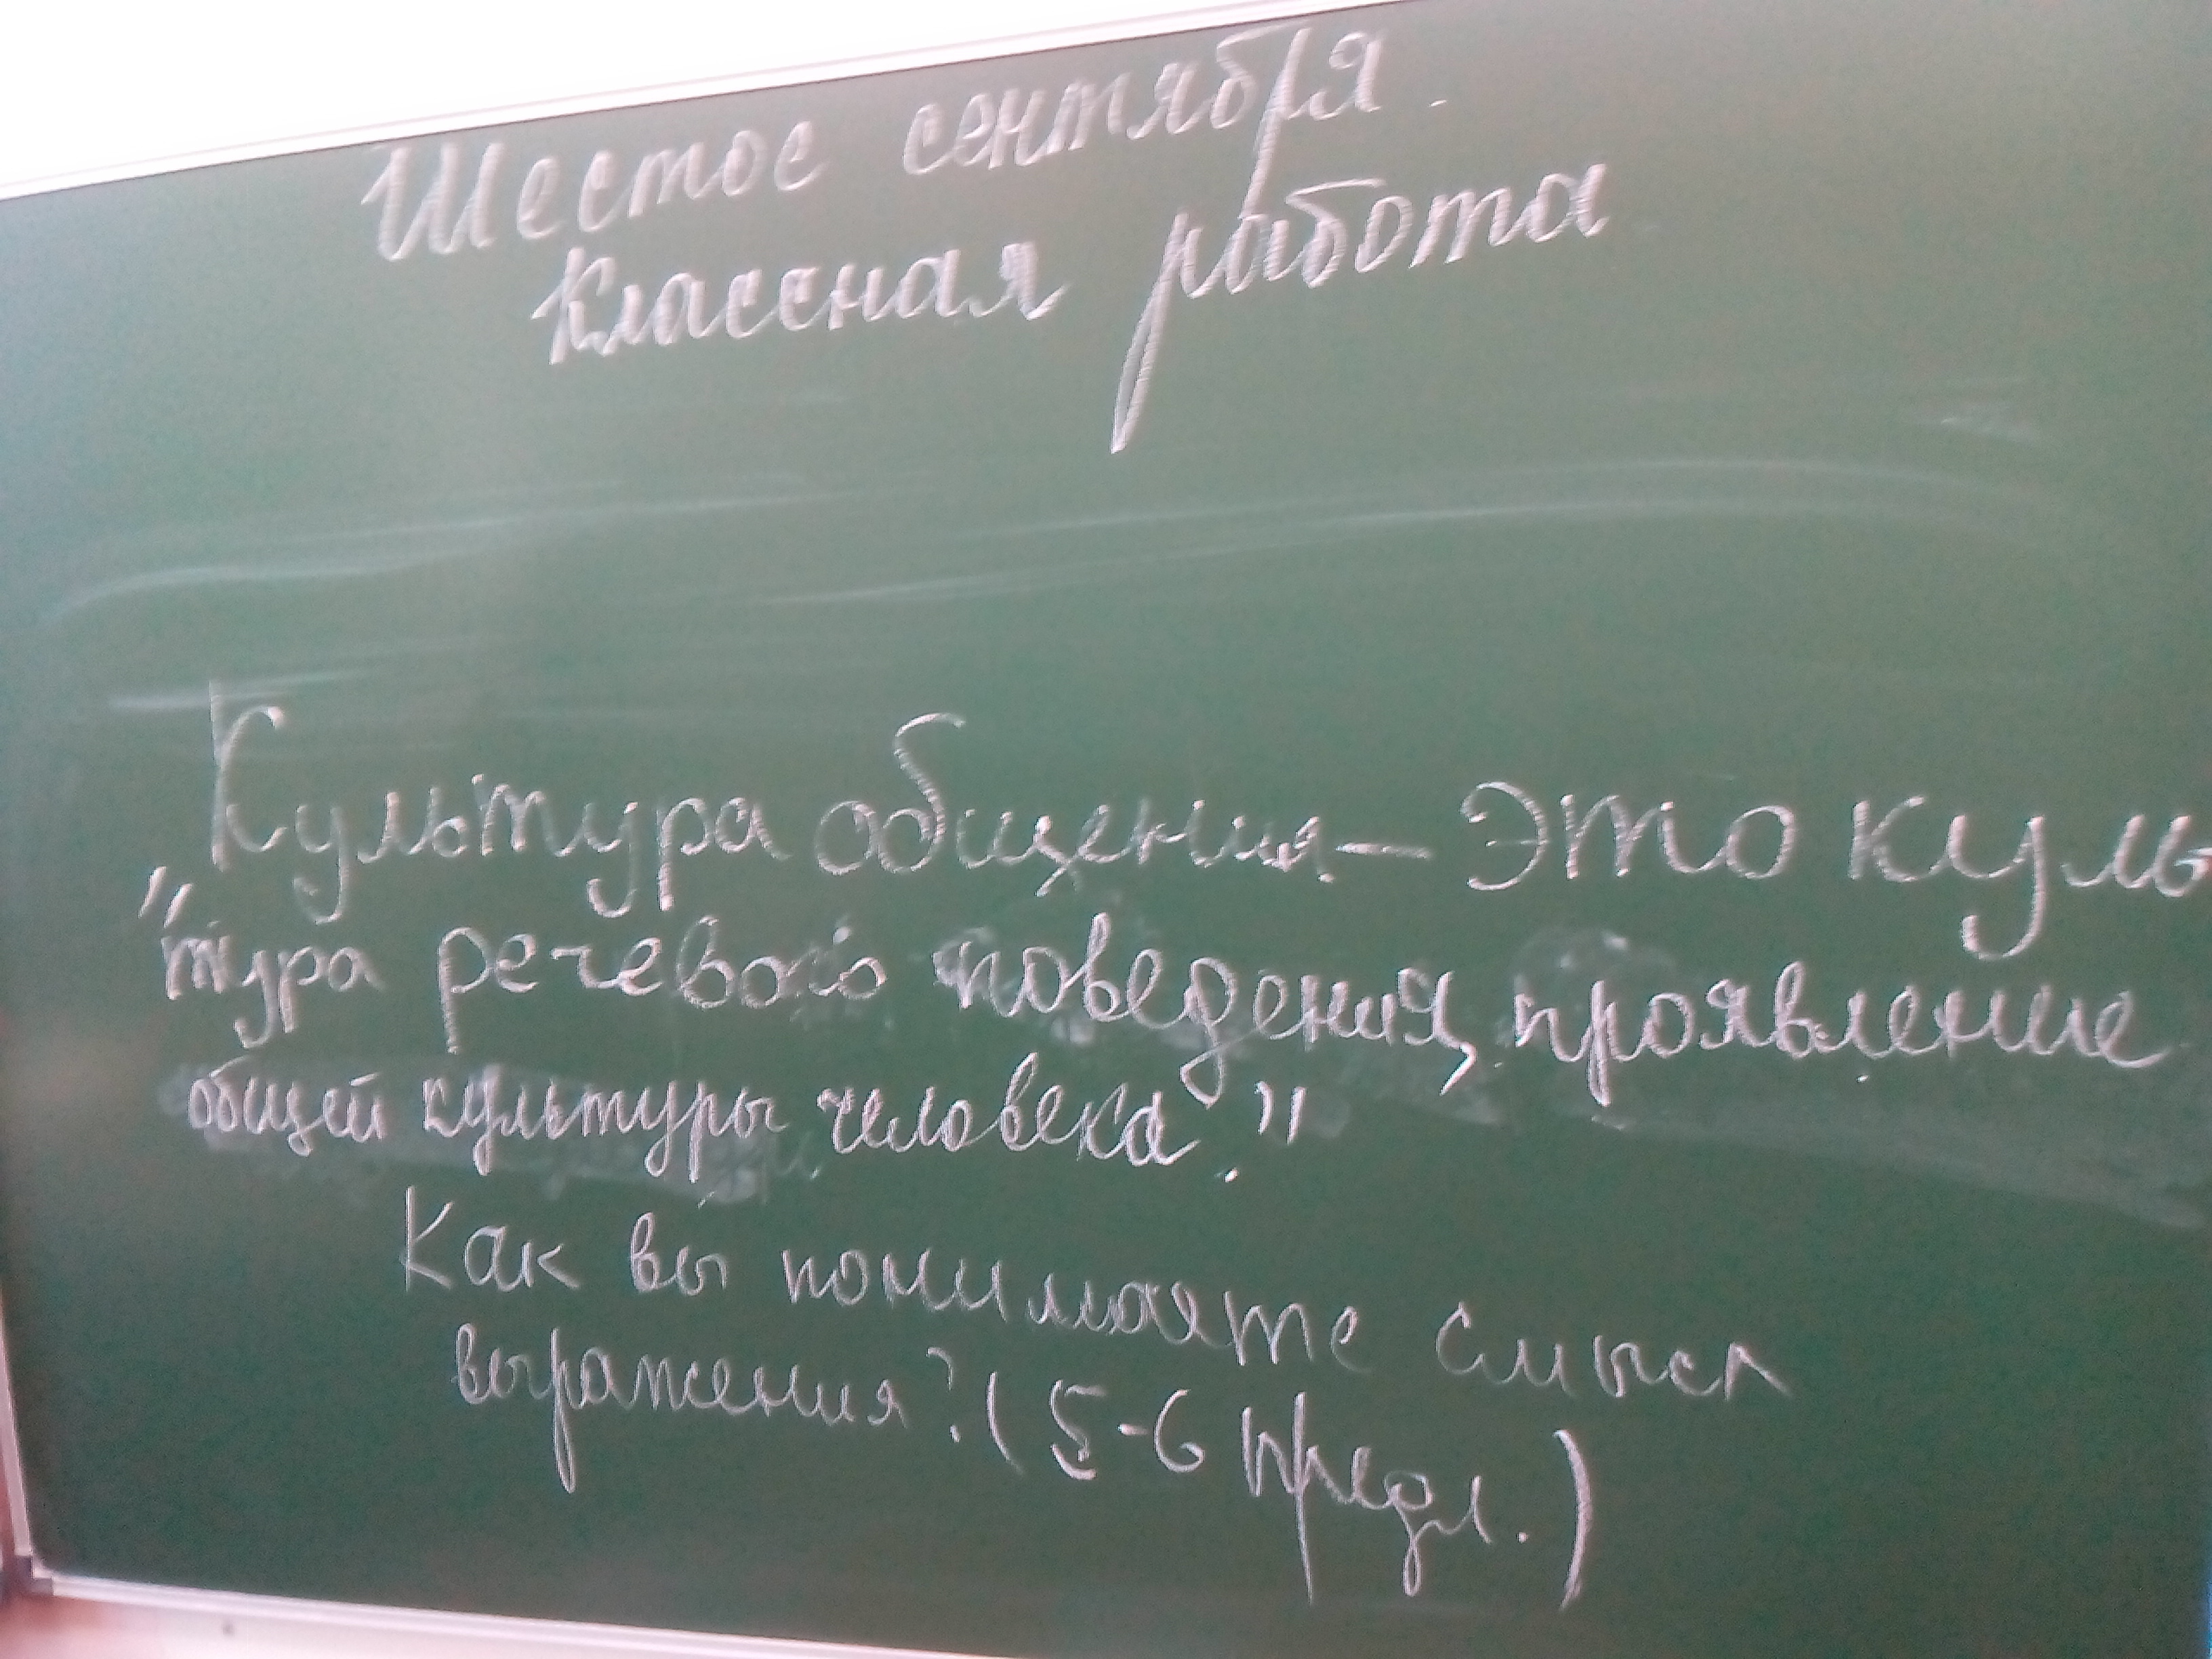 Шестое сентября.
Классная работа
„Культура общения - это куль
тура речевого поведения, проявление
общей культуры человека."
Как вы понимаете смысл
выражения? (5-6 предл.)